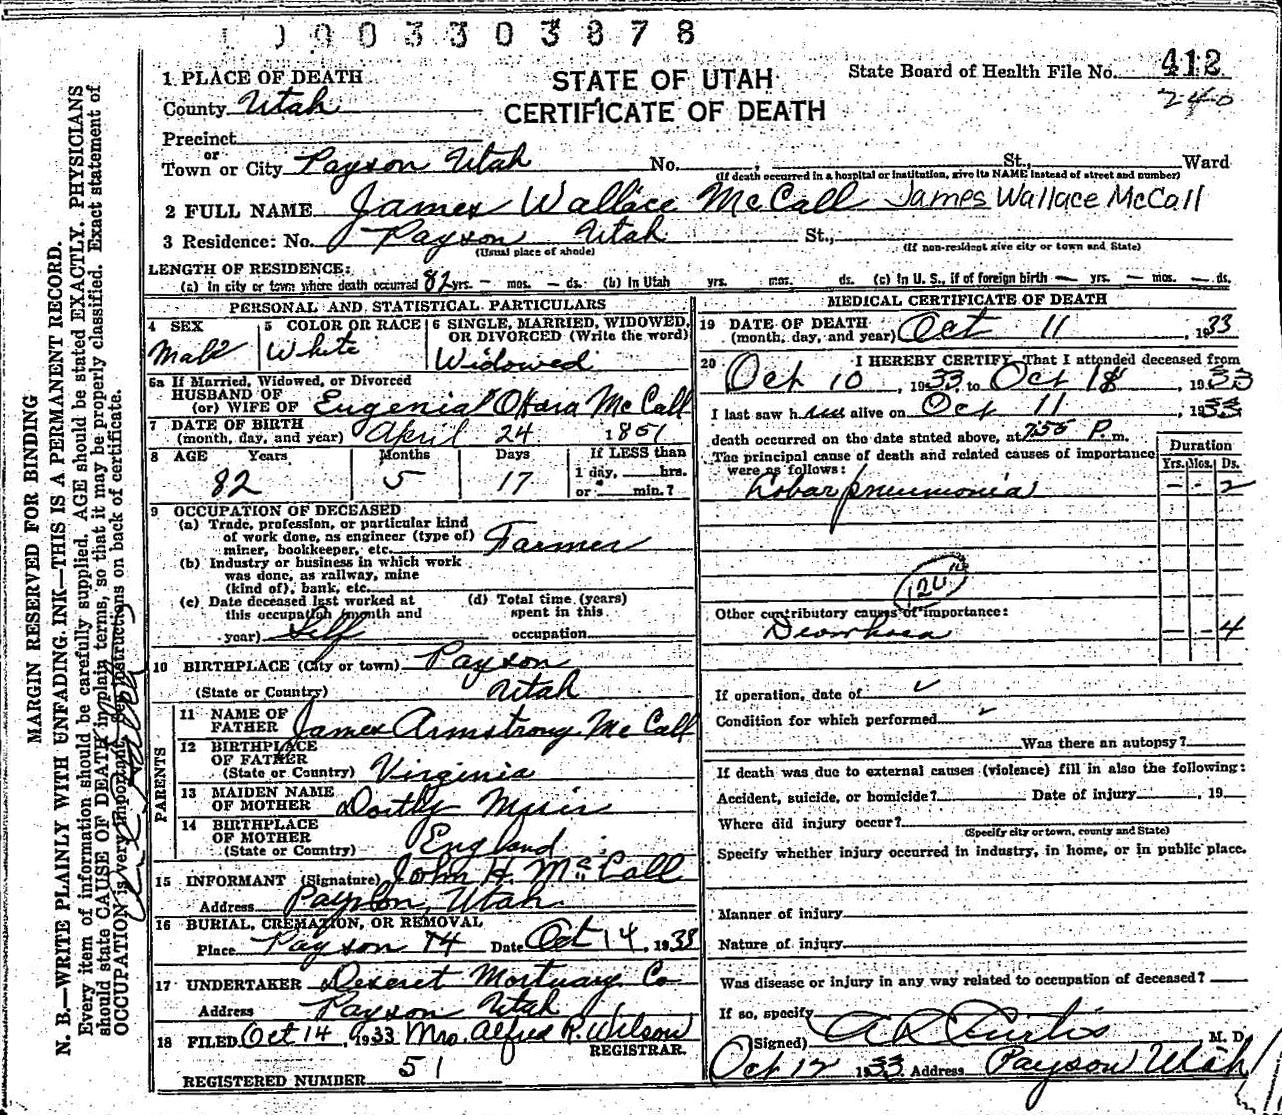 0003303878
1 PLACE OF DEATH
STATE OF UTAH
CERTIFICATE OF DEATH
State Board of Health File No. 412
240
County Utah
Precinct
or
Town or City Payson Utah No. , St., Ward
(If death occurred in a hospital or institution, give its NAME instead of street and number)
2 FULL NAME James Wallace McCall James Wallace McCall
3 Residence: No. Payson Utah St.,
(Usual place of abode) (If non-resident give city or town and State)
LENGTH OF RESIDENCE:
(a) In city or town where death occurred 82 yrs. – mos. – ds. (b) In Utah yrs. mos. ds. (c) In U. S., if of foreign birth – yrs. – mos. – ds.
PERSONAL AND STATISTICAL PARTICULARS
4 SEX 5 COLOR OR RACE 6 SINGLE, MARRIED, WIDOWED, OR DIVORCED (Write the word)
Male White Widowed
6a If Married, Widowed, or Divorced
HUSBAND OF
(or) WIFE OF Eugenia O'Hara McCall
7 DATE OF BIRTH
(month, day, and year) April 24 1851
8 AGE Years Months Days If LESS than
1 day, hrs.
or min.?
82 5 17
9 OCCUPATION OF DECEASED
(a) Trade, profession, or particular kind
of work done, as engineer (type of)
miner, bookkeeper, etc. Farmer
(b) Industry or business in which work
was done, as railway, mine
(kind of), bank, etc.
(c) Date deceased last worked at
this occupation (month and
year) Self
(d) Total time (years)
spent in this
occupation
10 BIRTHPLACE (City or town) Payson
(State or Country) Utah
PARENTS
11 NAME OF
FATHER James Armstrong McCall
12 BIRTHPLACE
OF FATHER
(State or Country) Virginia
13 MAIDEN NAME
OF MOTHER Muir
14 BIRTHPLACE
OF MOTHER
(State or Country) England
15 INFORMANT (Signature) John H. McCall
Address Payson, Utah
16 BURIAL, CREMATION, OR REMOVAL
Place Payson Date Oct 14, 1933
17 UNDERTAKER Deseret Mortuary Co
Address Payson Utah
18 FILED Oct 14, 1933 Mrs. Alfred R. Wilson
REGISTRAR.
REGISTERED NUMBER 51
MEDICAL CERTIFICATE OF DEATH
19 DATE OF DEATH
(month, day, and year) Oct 11, 1933
20 I HEREBY CERTIFY, That I attended deceased from
Oct 10, 1933 to Oct , 1933
I last saw h alive on Oct 11, 1933
death occurred on the date stated above, at 7:55 P. m.
The principal cause of death and related causes of importance
were as follows:
Duration
Yrs. Mos. Ds.
Lobar pneumonia – – 2
Other contributory causes of importance:
Diarrhoea – – 4
If operation, date of
Condition for which performed
Was there an autopsy?
If death was due to external causes (violence) fill in also the following:
Accident, suicide, or homicide? Date of injury , 19
Where did injury occur?
(Specify city or town, county and State)
Specify whether injury occurred in industry, in home, or in public place.
Manner of injury
Nature of injury
Was disease or injury in any way related to occupation of deceased?
If so, specify
(Signed) A R Curtis M. D.
Oct 12 1933 Address Payson Utah
MARGIN RESERVED FOR BINDING
N. B.—WRITE PLAINLY WITH UNFADING INK—THIS IS A PERMANENT RECORD.
Every item of information should be carefully supplied. AGE should be stated EXACTLY. PHYSICIANS
should state CAUSE OF DEATH in plain terms, so that it may be properly classified. Exact statement of
OCCUPATION is very important. See instructions on back of certificate.